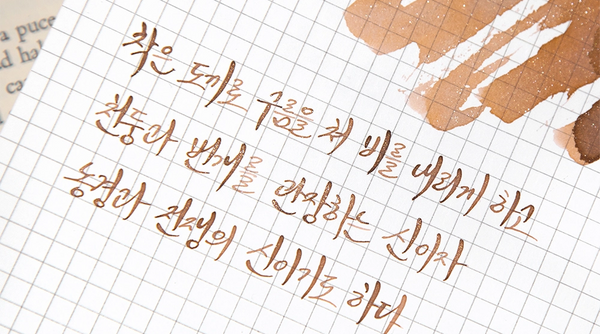 a puce
d hab
ca
작은 도끼로 구름을 쳐 비를 내리게 하고
천둥과 번개를 관장하는 신이자
농경과 전쟁의 신이기도 하다